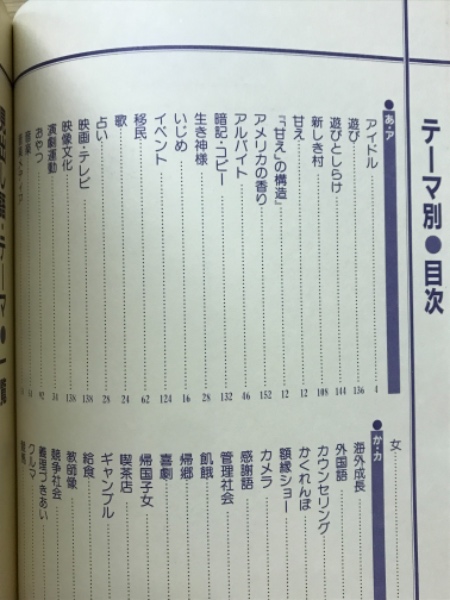 テーマ別●目次
●あ・ア
アイドル 4
遊び 136
遊びとしらけ 144
新しき村 108
甘え 12
「「甘え」の構造」 12
アメリカの香り 152
アルバイト 46
暗記・コピー 132
生き神様 28
いじめ 16
イベント 124
移民 62
歌 24
占い 28
映画・テレビ 138
映像文化 138
演劇運動 34
おやつ 92
女
●か・カ
海外成長
外国語
カウンセリング
かくれんぼ
額縁ショー
カメラ
感謝語
管理社会
飢餓
帰郷
喜劇
帰国子女
喫茶店
ギャンブル
給食
教師像
競争社会
義理づきあい
クルマ